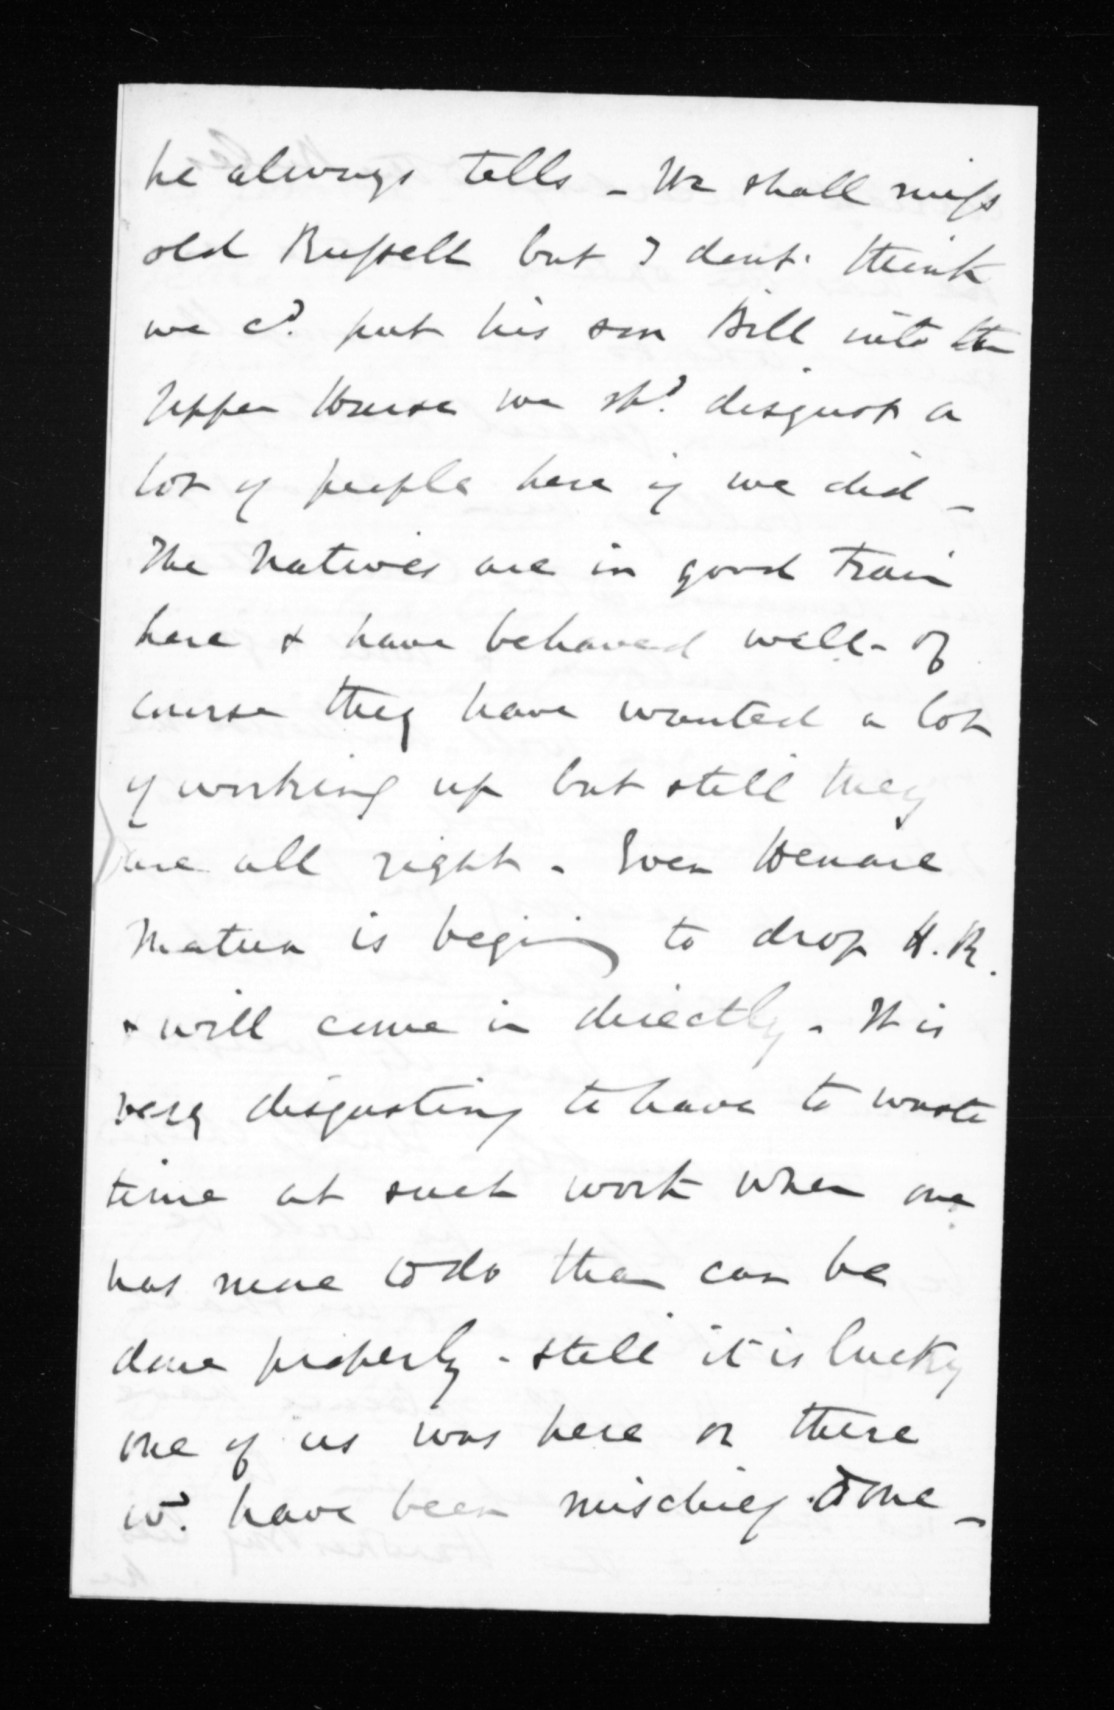 he always tells - We shall miss
old Russell but I dont think
we cd. put his son Bill into the
Upper House we shd. disgust a
lot of people here if we did -
The Natives are in good train
here & have behaved well - of
course they have wanted a lot
of working up but still they
are all right - Even Henare
Matua is begining to drop H.R.
& will come in directly - It is
very disgusting to have to waste
time at such work when one
has more to do than can be
done properly - still it is lucky
one of us was here or there
wd. have been mischief done -